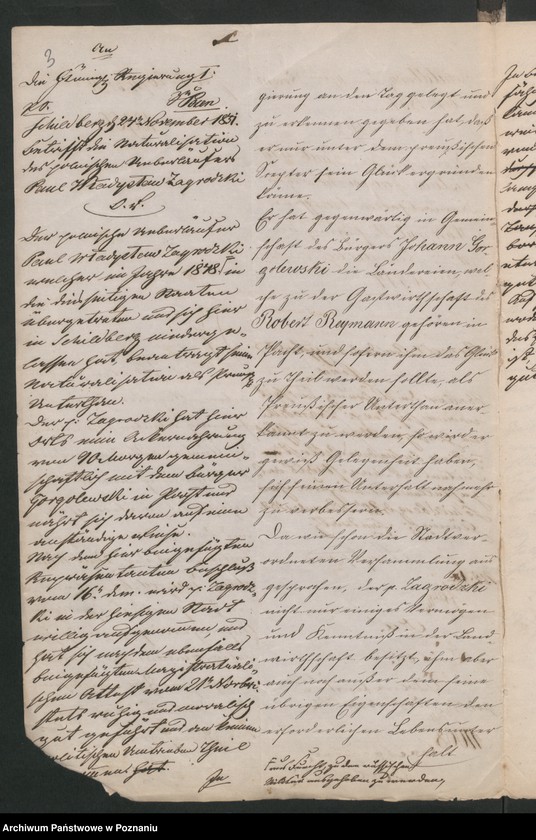 3
An
die Königl. Regierung I.
zu
Posen.
Schildberg d 24t November 1851.
betrifft die Naturalisation
des polnischen Ueberläufers
Paul Władysław Zagrodzki
Der polnische Ueberläufer
Paul Władysław Zagrodzki
welcher im Jahre 1848 in
die diesseitigen Staaten
übergetreten und sich hier
in Schildberg niederge-
lassen hat beantragt seine
Naturalisation als Preuß.
Unterthan.
Der p. Zagrodzki hat hier
Orts eine Ackernahrung
von 90 Morgen gemein-
schaftlich mit dem Bürger
Gorgolewski in Pacht und
nährt sich davon auf eine
anständige Weise.
Nach dem hier beigefügten
Repräsentanten Beschluß
vom 16t d.m. wird p. Zagrodz-
ki in der hiesigen Stadt
willig aufgenommen und
hat sich nach dem ebenfalls
beigefügten Magistratuali-
schen Attest vom 21t Novbr.
stets ruhig und moralisch
gut geführt und an keinen
politischen Umtrieben Theil
genommen hat.
gierung an den Tag gelegt und
zu erkennen gegeben hat, daß
er nur unter dem preußischen
Scepter sein Glück ergründen
könne.
Er hat gegenwärtig in Gemein
schaft des Bürgers Johann Gor
golewski die Ländereien, wel
che zu der Gastwirthschaft des
Robert Reymann gehören in
Pacht, und sofern ihm das Glück
zu Theil werden sollte, als
Preußischer Unterthan aner
kannt zu werden, so wird er
gewiß Gelegenheit haben,
sich seinen Unterhalt noch mehr
zu verbessern.
Da nun schon die Stadtver-
ordneten Versammlung aus
gesprochen, der p. Zagrodzki
nicht nur einiges Vermögen
und Kenntniß in der Land
wirthschaft besitzt, ihm aber
auch noch außer dem seine
übrigen Eigenschaften den
erforderlichen Lebensunter
halt
aus Furcht, zu dem russischen
Militair ausgehoben zu werden,
Archiwum Państwowe w Poznaniu